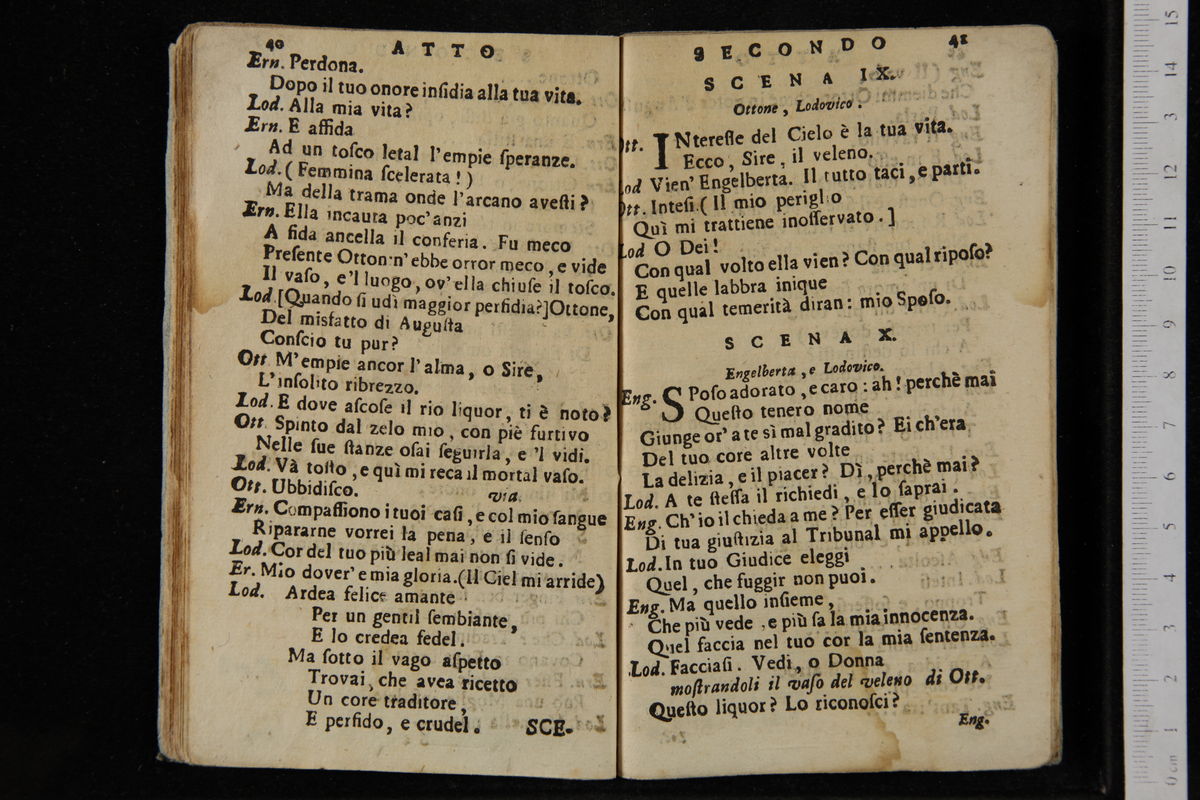 40 ATTO
Ern. Perdona.
Dopo il tuo onore inſidia alla tua vita.
Lod. Alla mia vita?
Ern. E affida
Ad un toſco letal l'empie ſperanze.
Lod. ( Femmina ſcelerata! )
Ma della trama onde l'arcano aveſti?
Ern. Ella incauta poc'anzi
A fida ancella il conferia. Fu meco
Preſente Otton n'ebbe orror meco, e vide
Il vaſo, e'l luogo, ov'ella chiuſe il toſco.
Lod. [Quando ſi udì maggior perfidia?] Ottone,
Del misfatto di Auguſta
Conſcio tu pur?
Ott M'empie ancor l'alma, o Sire,
L'inſolito ribrezzo.
Lod. E dove aſcoſe il rio liquor, ti è noto?
Ott Spinto dal zelo mio, con piè furtivo
Nelle ſue ſtanze oſai ſeguirla, e 'l vidi.
Lod. Và toſto, e quì mi reca il mortal vaſo.
Ott. Ubbidiſco. via.
Ern. Compaſſiono i tuoi caſi, e col mio ſangue
Ripararne vorrei la pena, e il ſenſo
Lod. Cor del tuo più leal mai non ſi vide.
Er. Mio dover' e mia gloria. (Il Ciel mi arride)
Lod. Ardea felice amante
Per un gentil ſembiante,
E lo credea fedel.
Ma ſotto il vago aſpetto
Trovai, che avea ricetto
Un core traditore,
E perfido, e crudel. SCE-
SECONDO 41
SCENA IX.
Ottone, Lodovico.
Ott. INtereſſe del Cielo è la tua vita.
Ecco, Sire, il veleno.
Lod Vien' Engelberta. Il tutto taci, e parti.
Ott. Inteſi. ( Il mio periglio
Quì mi trattiene inoſſervato. ]
Lod O Dei!
Con qual volto ella vien? Con qual ripoſo?
E quelle labbra inique
Con qual temerità diran: mio Spoſo.
SCENA X.
Engelberta, e Lodovico.
Eng. SPoſo adorato, e caro: ah! perchè mai
Queſto tenero nome
Giunge or' a te sì mal gradito? Ei ch'era
Del tuo core altre volte
La delizia, e il piacer? Dì, perchè mai?
Lod. A te ſteſſa il richiedi, e lo ſaprai.
Eng. Ch' io il chieda a me? Per eſſer giudicata
Di tua giuſtizia al Tribunal mi appello.
Lod. In tuo Giudice eleggi
Quel, che fuggir non puoi.
Eng. Ma quello inſieme,
Che più vede, e più ſa la mia innocenza.
Quel faccia nel tuo cor la mia ſentenza.
Lod. Facciaſi. Vedi, o Donna
moſtrandoli il vaſo del veleno di Ott.
Queſto liquor? Lo riconoſci?
Eng.
15
14
13
12
11
10
9
8
7
6
5
4
3
2
1
0 cm